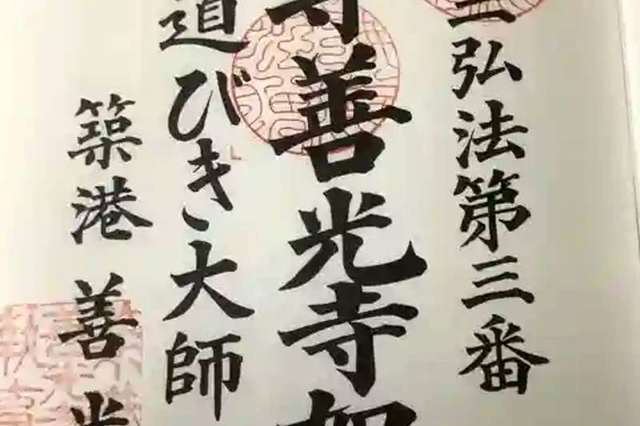 弘法第三番
善光寺
道びき大師
築港善光